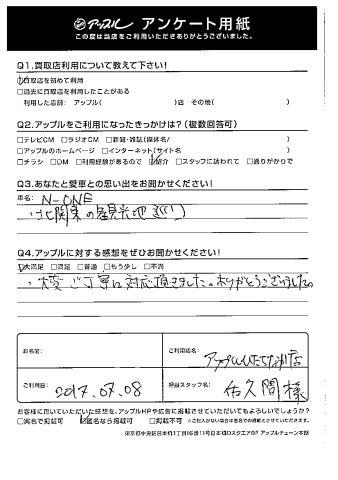 アップル アンケート用紙
この度は当店をご利用いただきありがとうございました。
Q1.買取店利用について教えて下さい!
☑買取店を初めて利用
□過去に買取店を利用したことがある
利用した店舗: アップル( )店 その他( )
Q2.アップルをご利用になったきっかけは?(複数回答可)
□テレビCM □ラジオCM □新聞・雑誌(媒体名/ )
□アップルのホームページ □インターネット(サイト名 )
□チラシ □DM □利用経験があるので ☑紹介 □スタッフに誘われて □通りがかりで
Q3.あなたと愛車との思い出をお聞かせください!
車名: N-ONE
・北関東の観光地巡り
Q4.アップルに対する感想をぜひお聞かせください!
☑大満足 □満足 □普通 □もう少し □不満
・大変ご丁寧に対応頂きました。ありがとうございました。
お名前:
ご利用店名:
アップルひたちなか店
ご利用日: 2017.07.08
担当スタッフ名: 佐久間様
お客様に書いていただいた感想を、アップルHPや広告に掲載させていただいてもよろしいでしょうか?
□実名で掲載可 ☑匿名なら掲載可 □掲載不可 ☆ご記入がない場合は匿名での掲載とさせていただきます。
東京都中央区日本橋1丁目16番11号日本橋Dスクエア9F アップルチェーン本部